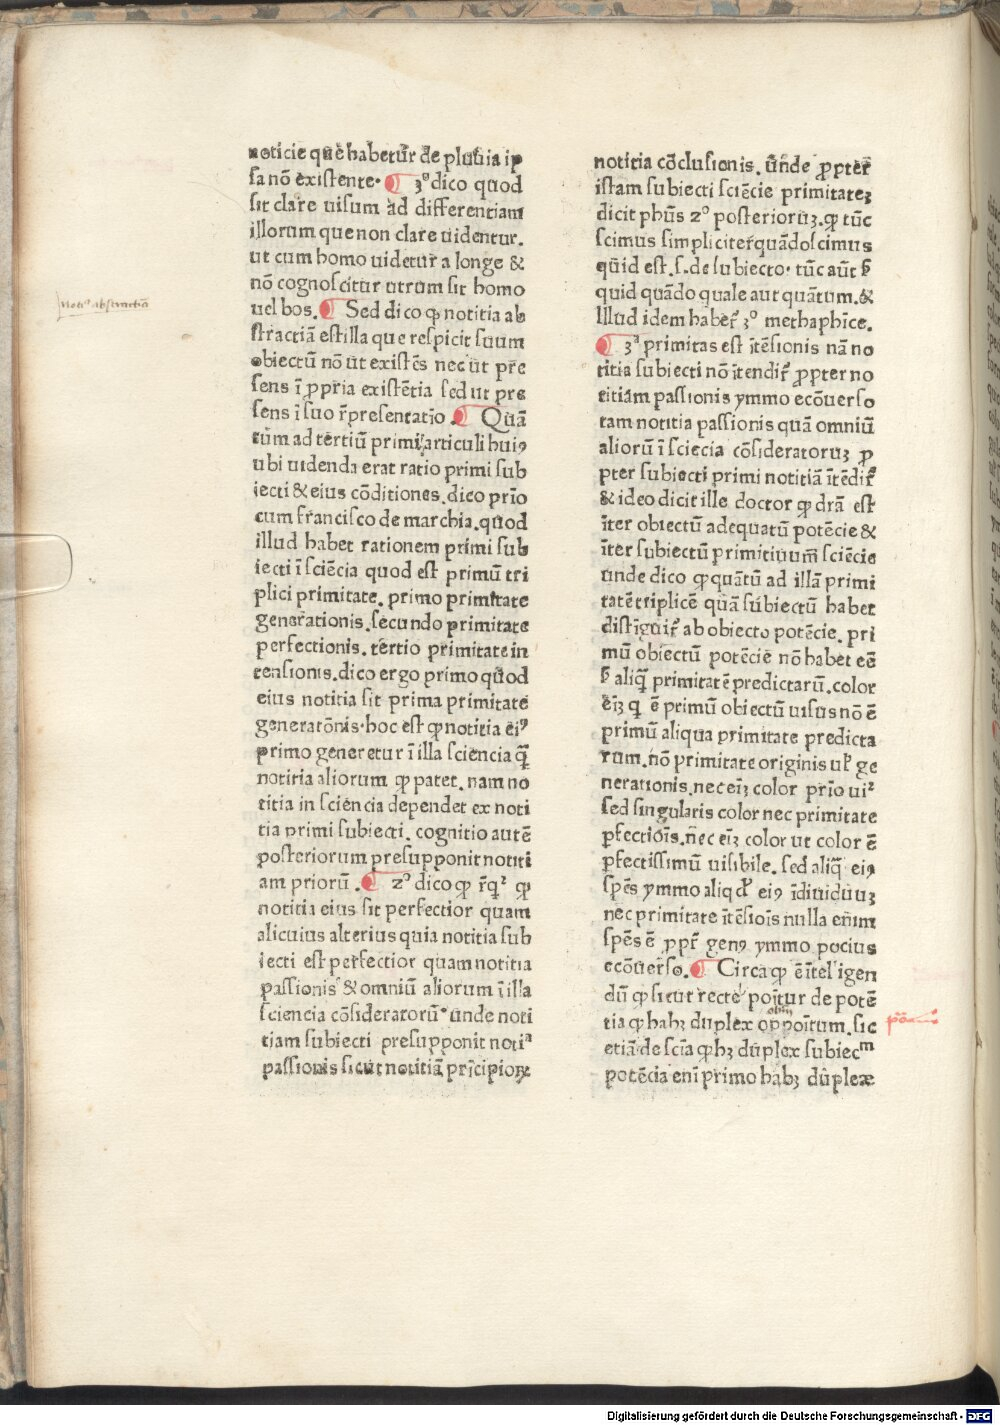 noticie quē habetur̄ de pluuia ip
sa nō existente· ¶ 3º dico quod
sit clare uisum ad differentiam
illorum que non clare uidentur.
ut cum homo uidetur a longe &
nō cognoscitur utrum sit homo
uel bos. ¶ Sed dico ꝙ notitia ab
stractiā est illa que respicit suum
obiectū nō ut existēs nec ut pre
sens ī ꝓpria existētia sed ut pre
sens ī suo r̄presentatio. ¶ Quā
tum ad tertiū primi articuli huiꝯ
ubi uidenda erat ratio primi sub
iecti & eius cōditiones. dico prīo
cum francisco de marchia. quod
illud habet rationem primi sub
iecti ī sciēcia quod est primū tri
plici primitate. primo primitate
generationis. secundo primitate
perfectionis. tertio primitate in
tensionis. dico ergo primo quod
eius notitia sit prima primitate
generatōnis· hoc est ꝙ notitia eiꝰ
primo generetur ī illa sciencia qᷓ
notitia aliorum ꝙ patet. nam no
titia in sciencia dependet ex noti
tia primi subiecti. cognitio autē
posteriorum presupponit notiti
am priorū. ¶ 2º dico ꝙ r̄qꝛ̄ ꝙ
notitia eius sit perfectior quam
alicuius alterius quia notitia sub
iecti est perfectior quam notitia
passionis & omniū aliorum ī illa
sciencia cōsideratorū· unde noti
tiam subiecti presupponit notiª
passionis sicut notitiā prīcipioꝝ
notitia cōclusionis. unde ꝓpter
istam subiecti sciēcie primitateꝫ
dicit phūs 2º posterioruꝫ. ꝙ tūc
scimus simpliciter quādo scimus
quid est. s. de subiecto· tūc aut̄ ꝑ
quid quādo quale aut quātum. &
Illud idem haber̄ 3º methaphīce.
¶ 3ª primitas est ītēsionis nā no
titia subiecti nō ītendir̄ ꝓpter no
titiam passionis ymmo ecōuerso
tam notitia passionis quā omniū
aliorū ī sciecia cōsideratoruꝫ ꝓ
pter subiecti primi notitiā ītēdir̄
& ideo dicit ille doctor ꝙ drā est
īter obiectū adequatū potēcie &
īter subiectū primitiuum̄ sciēcie
unde dico ꝙ quātū ad illā primi
tatē triplicē quā subiectū habet
distīguir̄ ab obiecto potēcie. pri
mū obiectū potēcie nō habet eē
ꝑ aliqᷓ primitatē predictarū. color
ēiꝫ qͥ ē primū obiectū uisus nō ē
primū aliqua primitate predicta
rum. nō primitate originis ul̓ ge
nerationis. nec eiꝫ color prīo uiꝛ
sed singularis color nec primitate
ꝑfectiōis. nec eiꝫ color ut color ē
ꝑfectissimū uisibile. sed aliqͣ eiꝯ
spēs ymmo aliqd̓ eiꝯ īdiuiduuꝫ
nec primitate ītēsiōis nulla enim
spēs ē ꝓpr̄ genꝯ ymmo pocius
ecōuerso. ¶ Circa ꝙ ē ītelligen
dū ꝙ sicut recte poītur de potē
tia ꝙ habꝫ duplex oppoītum. sic
etiā de scīa ꝙ hꝫ duplex subiecᵐ
potēcia eni primo habꝫ duplex
Digitalisierung gefördert durch die Deutsche Forschungsgemeinschaft - DFG